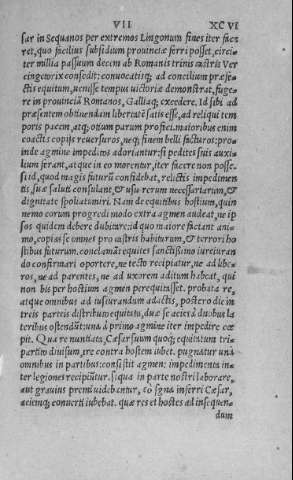 VII XCVI
sar in Sequanos per extremos Lingonum fines iter face
ret, quo facilius subsidium prouinciæ ferri posset, circi
ter millia passuum decem ab Romanis trinis castris Ver
cingetorix consedit: conuocatisq; ad concilium præfe-
ctis equitum, uenisse tempus uictoriæ demonstrat, fuge-
re in prouinciā Romanos, Galliaq; excedere. Id sibi ad
præsentem obtinendam libertatē satis esse, ad reliqui tem
poris pacem, atq; otium parum profici. maioribus enim
coactis copijs reuersuros, neq; finem belli facturos: pro-
inde agmine impeditos adoriantur: si pedites suis auxi
lium ferant, atque in eo morentur, iter facere non posse.
si id, quod magis futurū confidebat, relictis impedimen
tis, suæ saluti consulant, & usu rerum necessariarum, &
dignitate spoliatum iri. Nam de equitibus hostium, quin
nemo eorum progredi modo extra agmen audeat, ne ip
sos quidem debere dubitare: id quo maiore faciant ani-
mo, copias se omnes pro castris habiturum, & terrori ho
stibus futurum. conclamāt equites sanctissimo iureiuran
do confirmari oportere, ne tecto recipiatur, ne ad libe-
ros, ne ad parentes, ne ad uxorem aditum habeat, qui
non bis per hostium agmen perequitasset. probata re,
atque omnibus ad iusiurandum adactis, postero die in
treis parteis distributo equitatu, duæ se acies à duobus la
teribus ostendūt: una à primo agmine iter impedire cœ
pit. Qua re nuntiata, Cæsar suum quoq; equitatum tri-
partito diuisum, ire contra hostem iubet. pugnatur unà
omnibus in partibus: consistit agmen: impedimenta in-
ter legiones recipiūtur. Si qua in parte nostri laborare,
aut grauius premi uidebantur, eo signa inferri Cæsar,
aciemq; conuerti iubebat. quæ res et hostes ad insequen-
dum